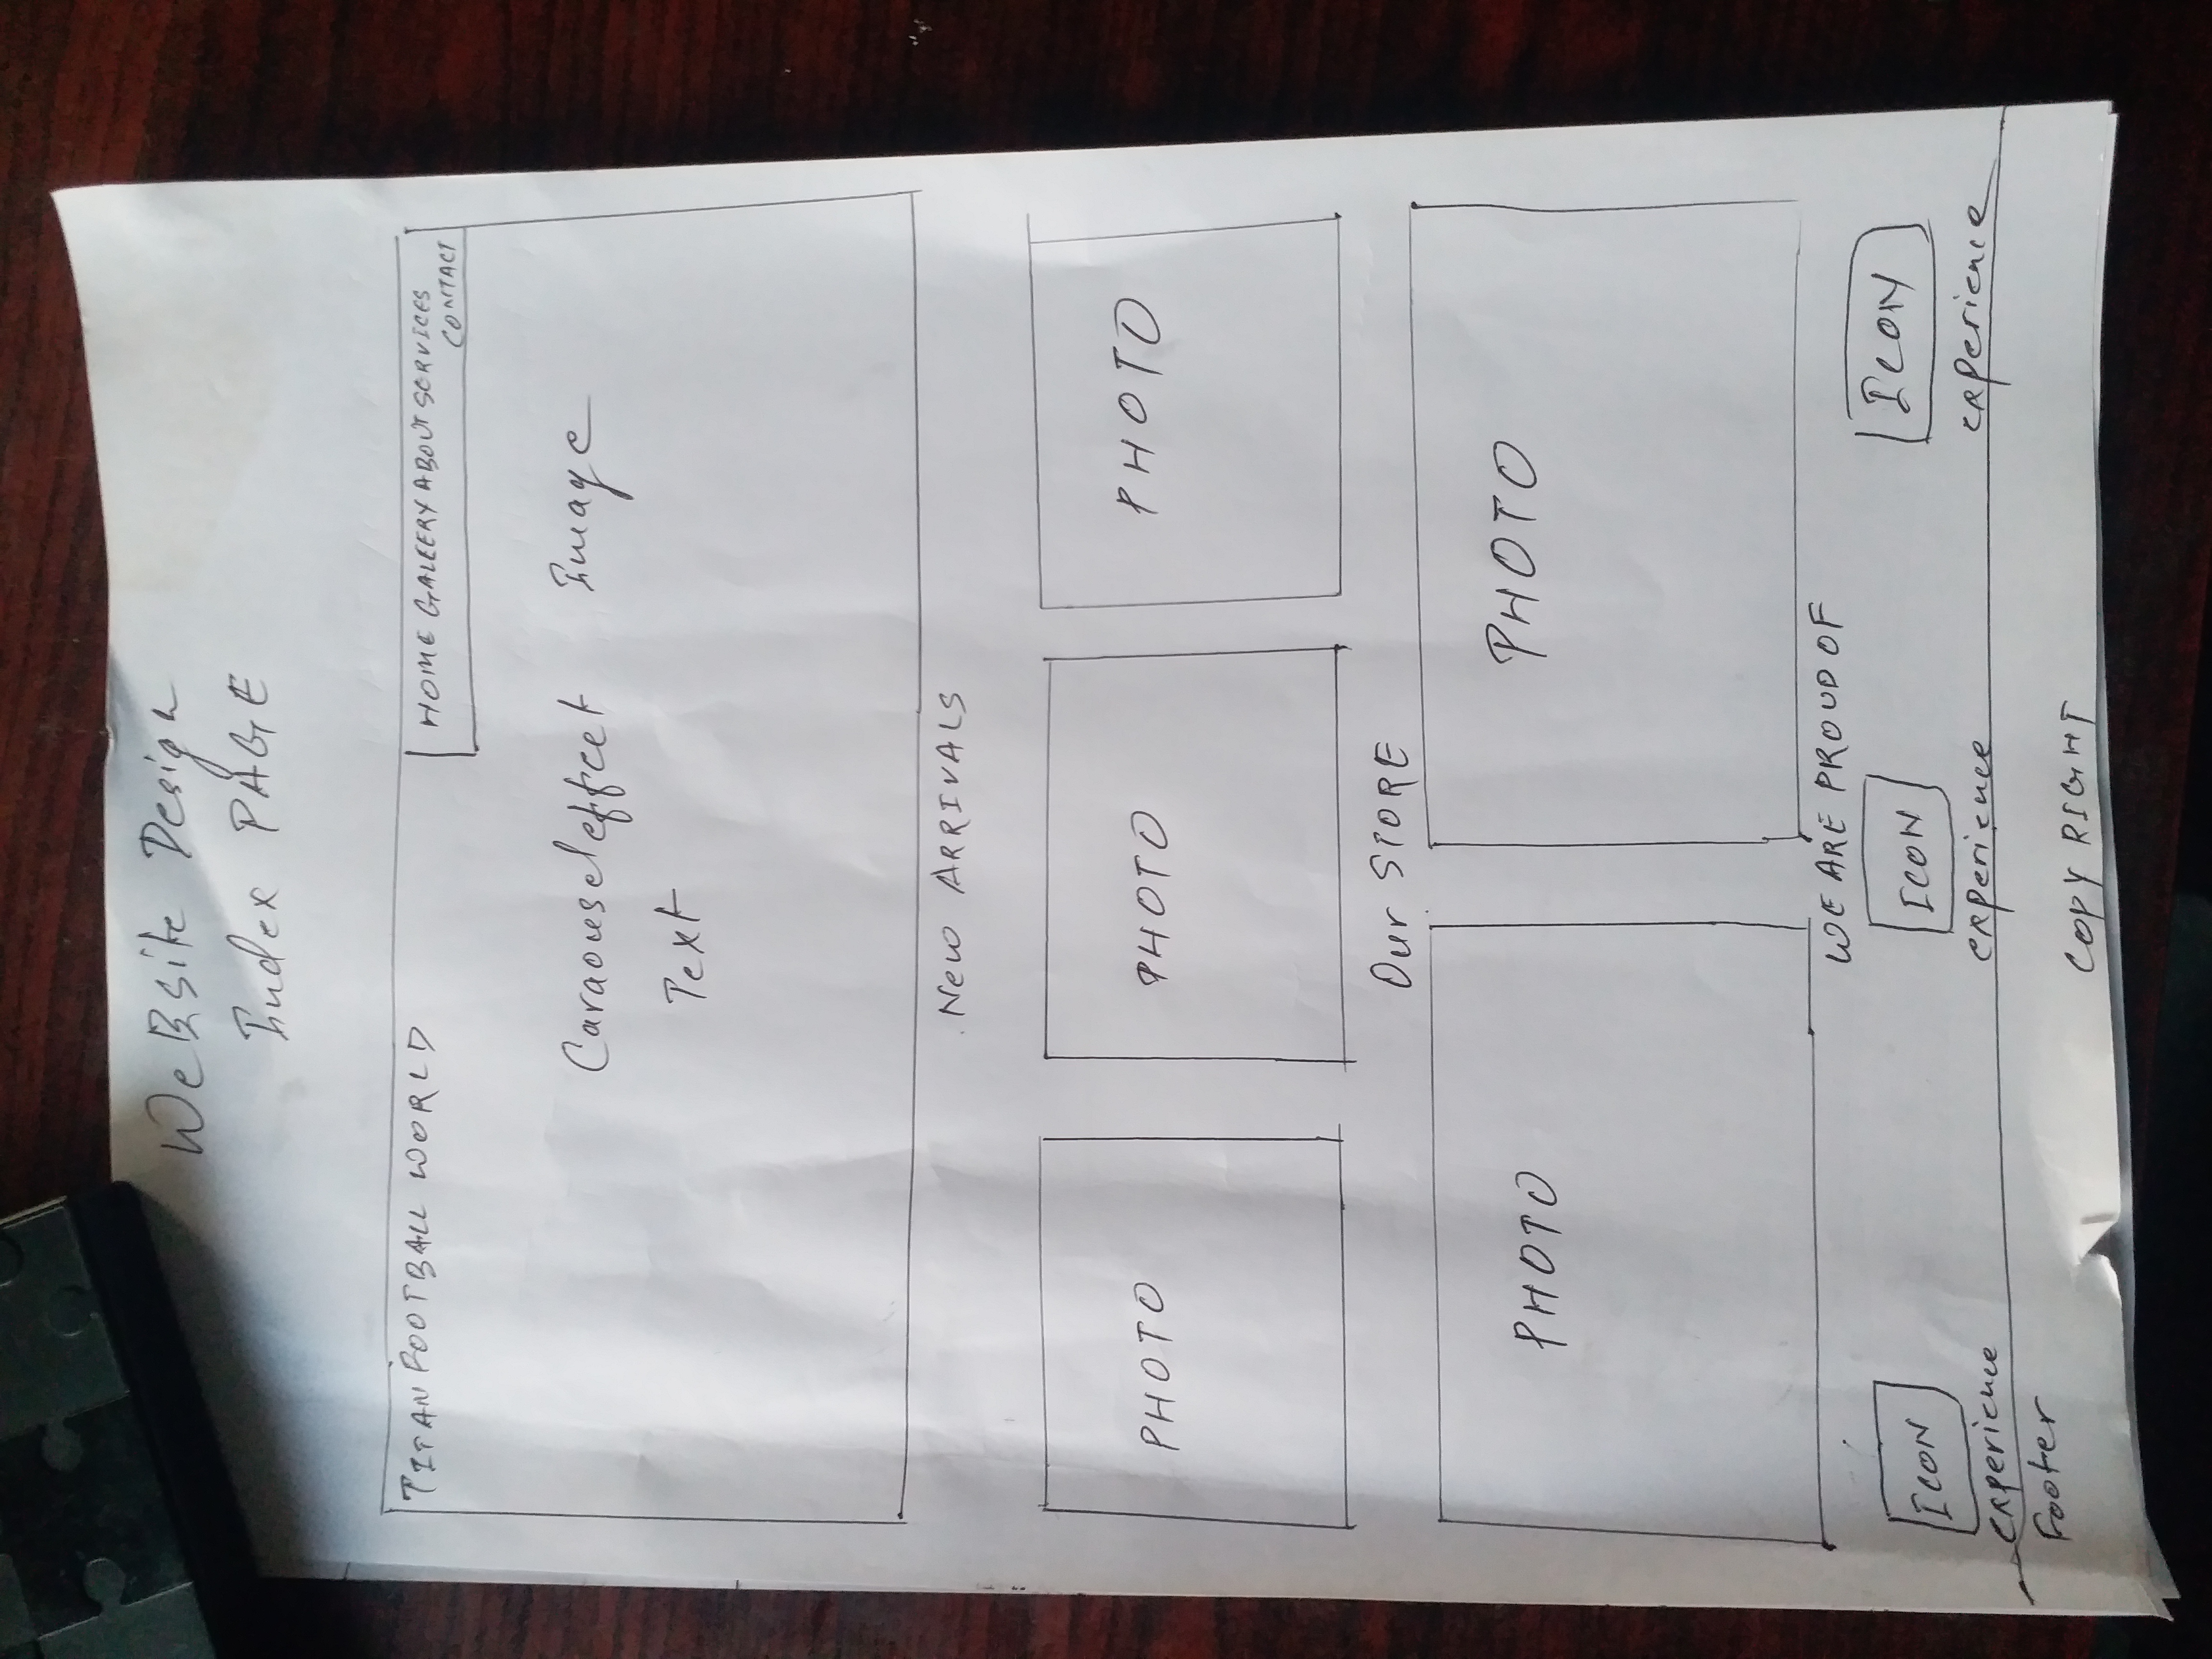 WeBsite Design
Index PAGE
TITAN FOOTBALL WORLD
HOME GALLERY ABOUT SERVICES
CONTACT
Caraousel effect Image
Text
New ARRIVALS
PHOTO PHOTO PHOTO
Our STORE
PHOTO PHOTO
WE ARE PROUD OF
ICON ICON ICON
experience experience experience
Footer
COPY RIGHT